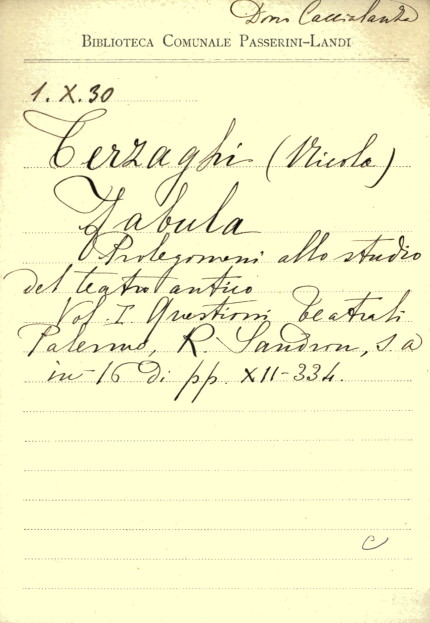 Dono Caccialanza
BIBLIOTECA COMUNALE PASSERINI-LANDI
1. X. 30
Terzaghi (Nicola)
Fabula
Prolegomeni allo studio
del teatro antico
Vol. I Questioni teatrali
Palermo, R. Sandron, s. a
in 16 di pp. XII-334.
C